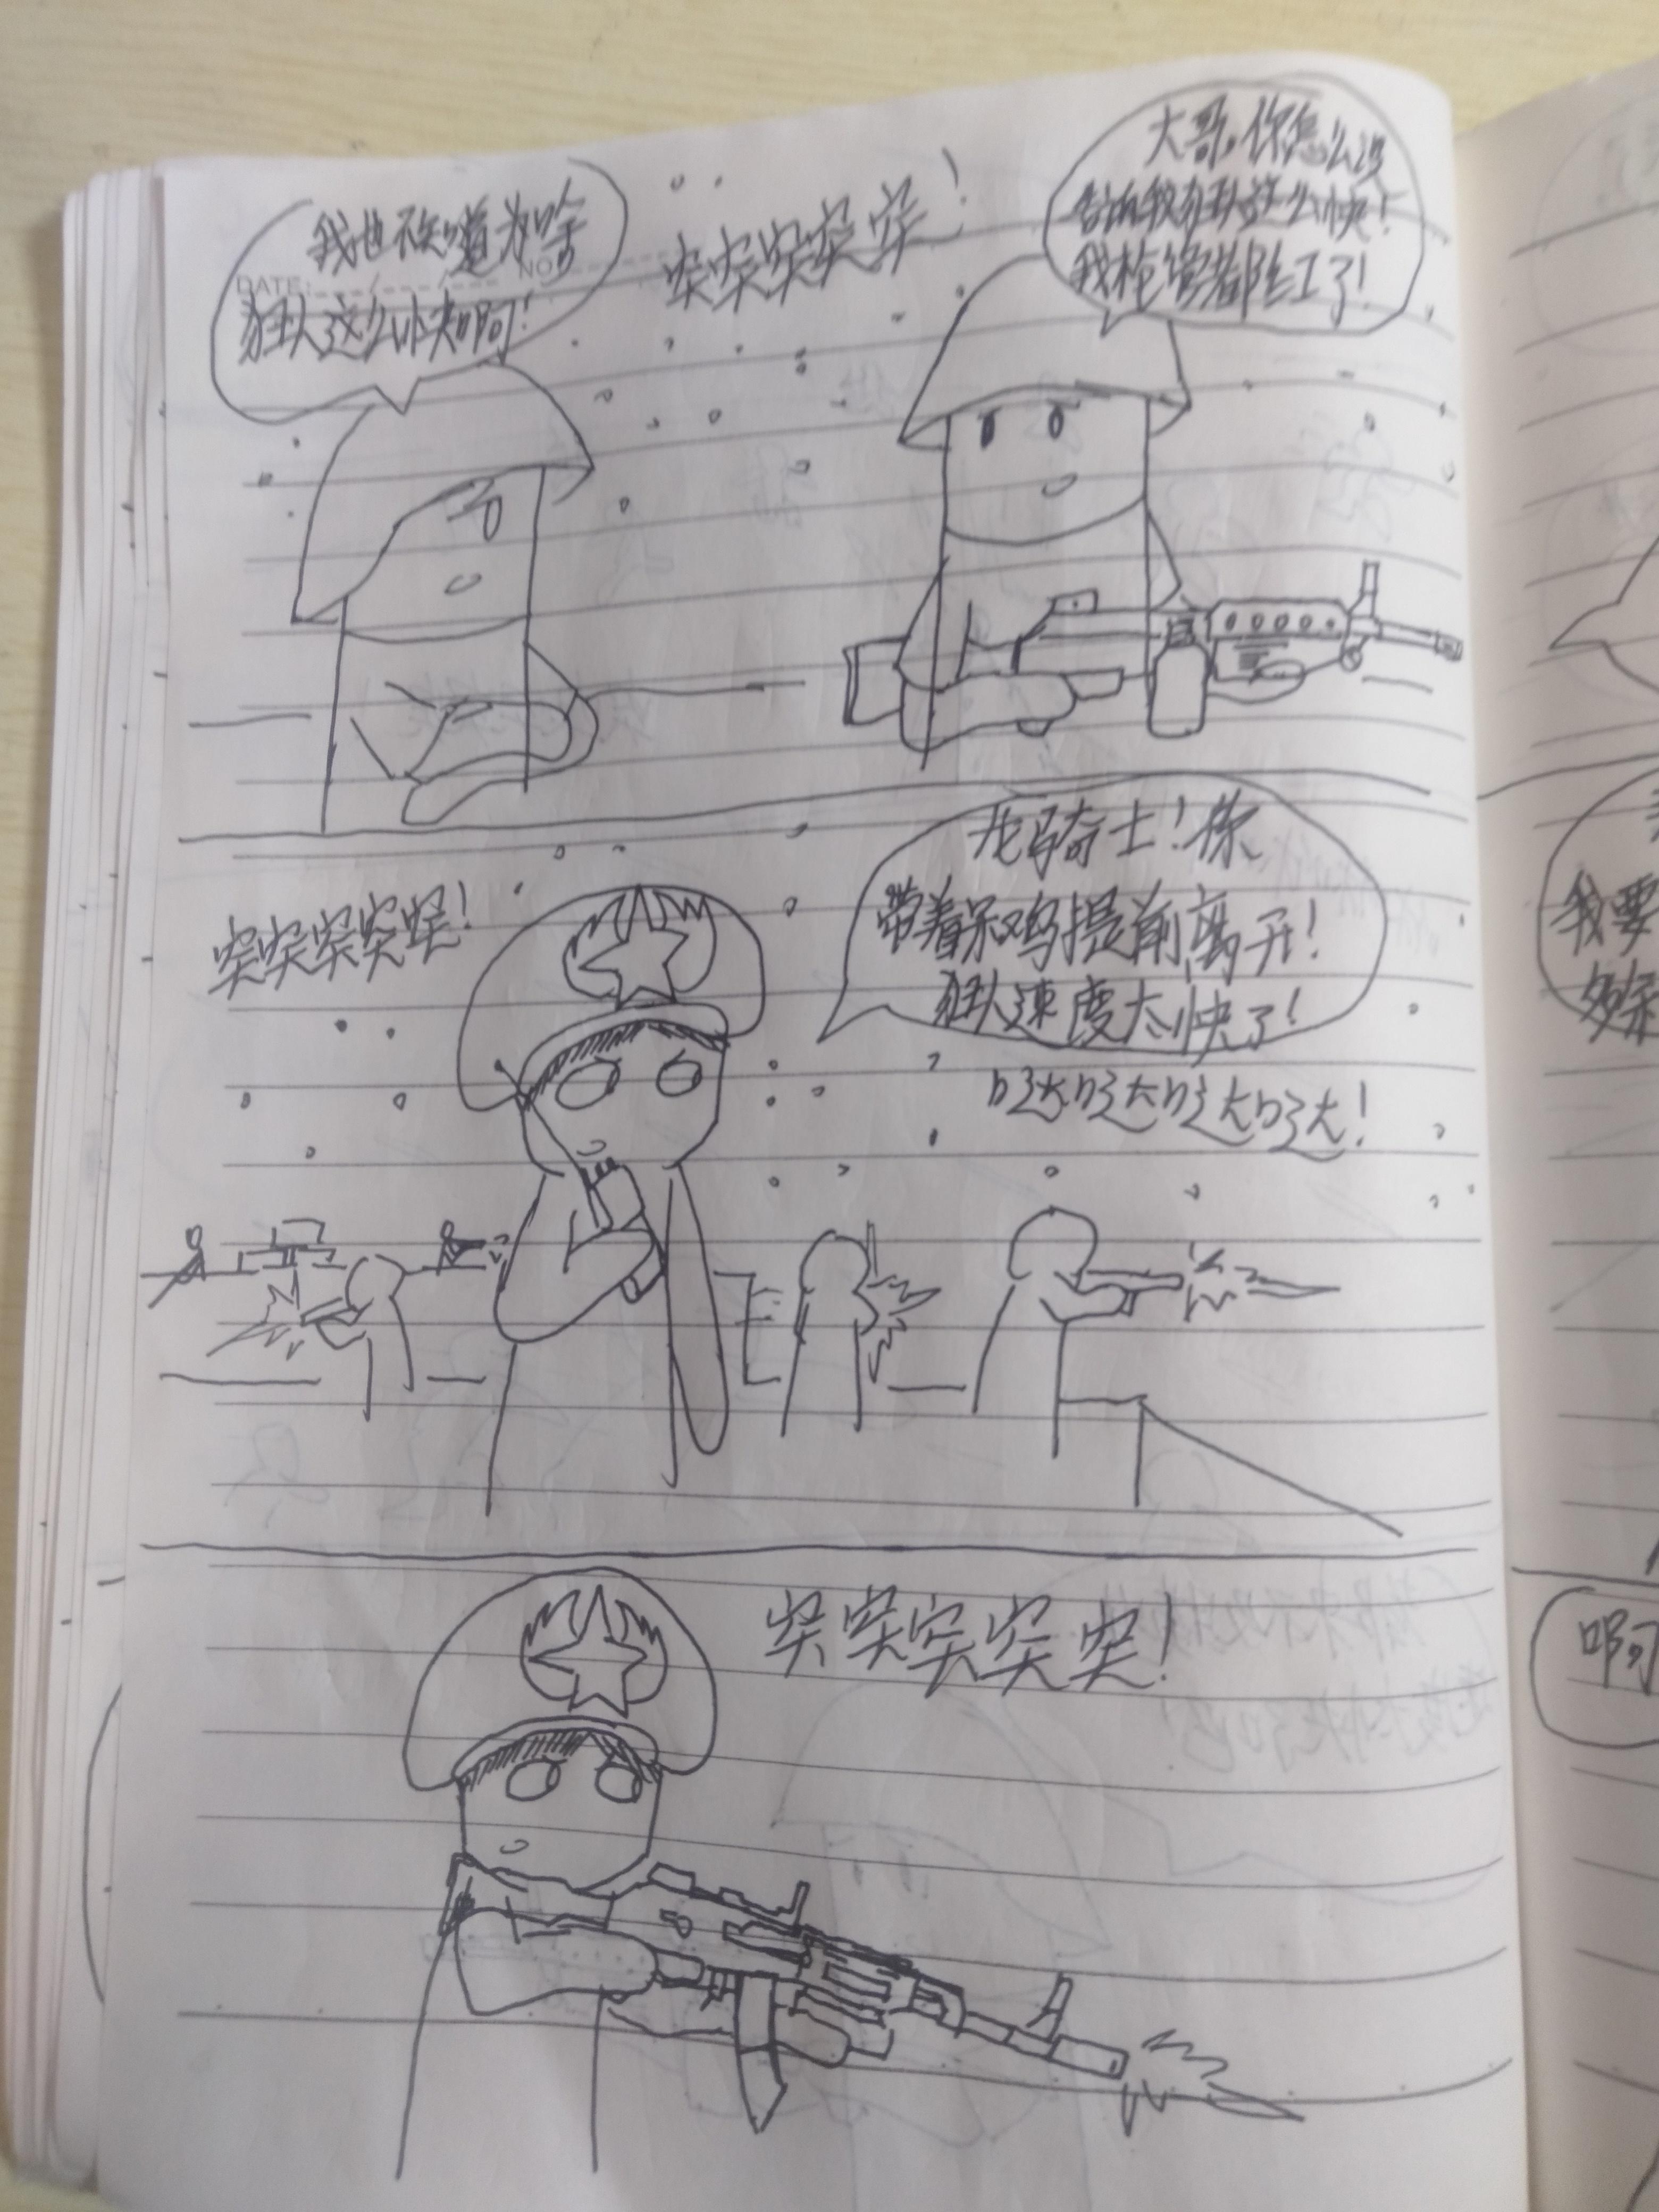 我也不知道为啥
DATE: / / NO
狂队这么快啊!
突突突突突!
大哥,你怎么没
告诉我狂队这么快!
我枪管都红了!
突突突突突!
龙骑士!你
带着呆鸡提前离开!
狂队速度太快了!
哒哒哒哒!
突突突突突!
我要
啊